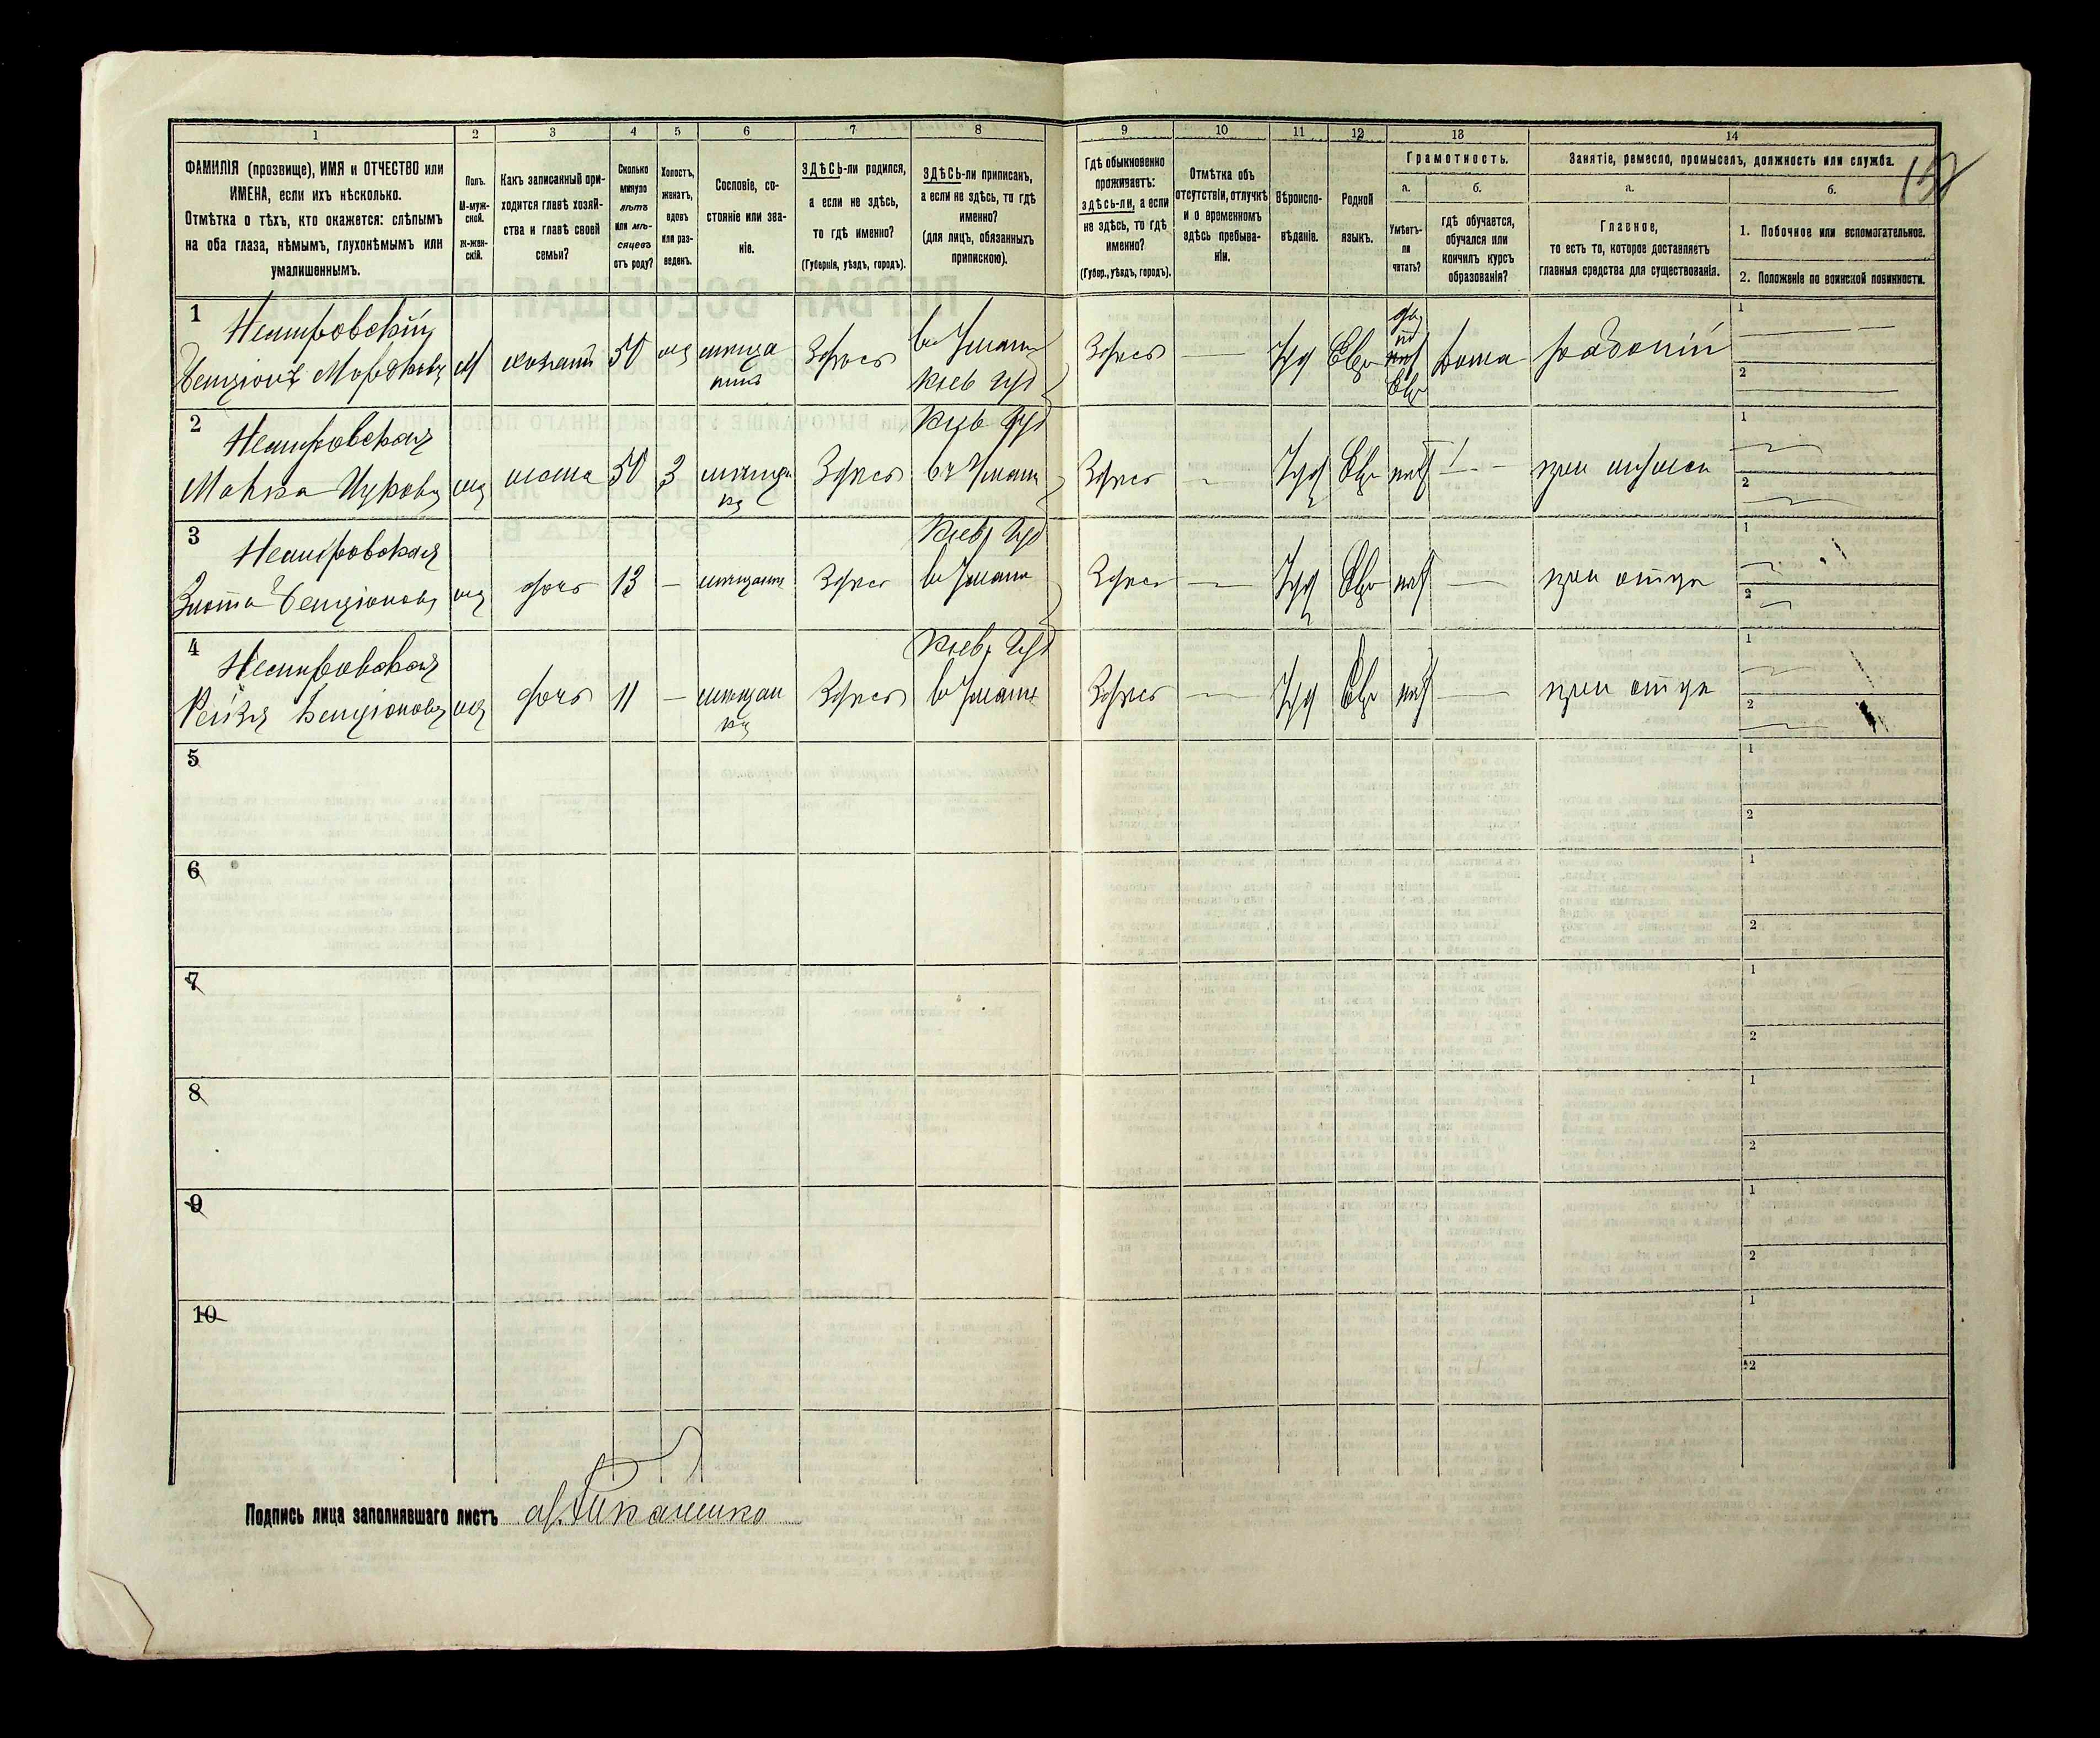 1 2 3 4 5 6 7 8 9 10 11 12 13 14
ФАМИЛІЯ (прозвище), ИМЯ и ОТЧЕСТВО или
ИМЕНА, если ихъ нѣсколько.
Отмѣтка о тѣхъ, кто окажется: слѣпымъ
на оба глаза, нѣмымъ, глухонѣмымъ или
умалишеннымъ.
Полъ.
М-муж-
ской.
ж-жен-
скій.
Какъ записанный при-
ходится главѣ хозяй-
ства и главѣ своей
семьи?
Сколько
минуло
лѣтъ
или мѣ-
сяцевъ
отъ роду?
Холостъ,
женатъ,
вдовъ
или раз-
веденъ.
Сословіе, со-
стояніе или зва-
ніе.
ЗДѢСЬ-ли родился,
а если не здѣсь,
то гдѣ именно?
(Губернія, уѣздъ, городъ).
ЗДѢСЬ-ли приписанъ,
а если не здѣсь, то гдѣ
именно?
(для лицъ, обязанныхъ
припискою).
Гдѣ обыкновенно
проживаетъ:
здѣсь-ли, а если
не здѣсь, то гдѣ
именно?
(Губер., уѣздъ, городъ).
Отмѣтка объ
отсутствіи, отлучкѣ
и о временномъ
здѣсь пребыва-
ніи.
Вѣроиспо-
вѣданіе.
Родной
языкъ.
Грамотность.
а.
Умѣетъ-
ли
читать?
б.
гдѣ обучается,
обучался или
кончилъ курсъ
образованія?
Занятіе, ремесло, промыселъ, должность или служба.
а.
Главное,
то есть то, которое доставляетъ
главныя средства для существованія.
б.
1. Побочное или вспомогательное.
2. Положеніе по воинской повинности.
1 Немировскій
Бенціонъ Мордковъ М хозяинъ 50 жен мѣща
нинъ Здѣсь въ Умани
Кіев губ Здѣсь — Іуд Евр да
по
Евр дома раввинъ 1 — 2 —
2 Немировская
Малка Ицкова ж жена 50 З мѣщан
ка Здѣсь Кіев губ
въ Умани Здѣсь — Іуд Евр нѣт — при мужѣ 1 — 2 —
3 Немировская
Злота Бенціонова ж дочь 13 — мѣщанка Здѣсь Кіев губ
въ Умани Здѣсь — Іуд Евр нѣт — при отцѣ 1 — 2 —
4 Немировская
Рейзя Бенціонова ж дочь 11 — мѣщан
ка Здѣсь Кіев. губ
въ Умани Здѣсь — Іуд Евр нѣт — при отцѣ 1 — 2 —
5 1 2
6 1 2
7 1 2
8 1 2
9 1 2
10 1 2
Подпись лица заполнявшаго листъ